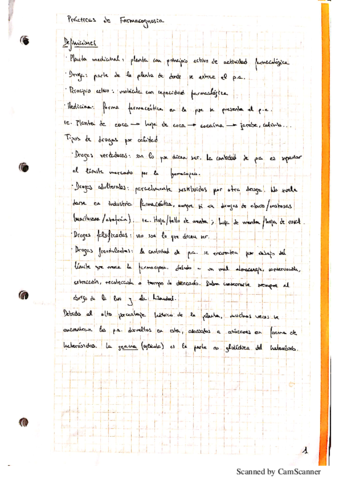 Prácticas de Farmacognosia.
Definiciones
· Planta medicinal: planta con principio activo de actividad farmacológica.
· Droga: parte de la planta de donde se extrae el p.a.
· Principio activo: molécula con capacidad farmacológica.
· Medicina: forma farmacéutica en la que se presenta el p.a.
ie. Planta de coca → hoja de coca → cocaína → jarabe, colirio...
Tipos de drogas por calidad
· Drogas verdaderas: son lo que dicen ser. La cantidad de p.a. es superior
al límite marcado por la farmacopea.
· Drogas adulteradas: parcialmente sustituidas por otra droga. No suele
darse en industria farmacéutica, aunque sí en drogas de abuso/
ie. Hoja/tallo de menta; hoja de /hoja de
· Drogas falsificadas: no son lo que dicen ser.
· Drogas la cantidad de p.a. se encuentra por debajo del
límite que marca la farmacopea debido a un mal almacenaje, conservación,
extracción, recolección o tiempo de desecado. Deben conservarse siempre al
abrigo de la luz y la humedad.
Debido al alto porcentaje hídrico de la planta, muchas veces se
encuentran los p.a. disueltos en esta, asociados a azúcares en forma de
heterósidos. La genina (aglicón) es la parte no glicídica del heterósido.
1
Scanned by CamScanner